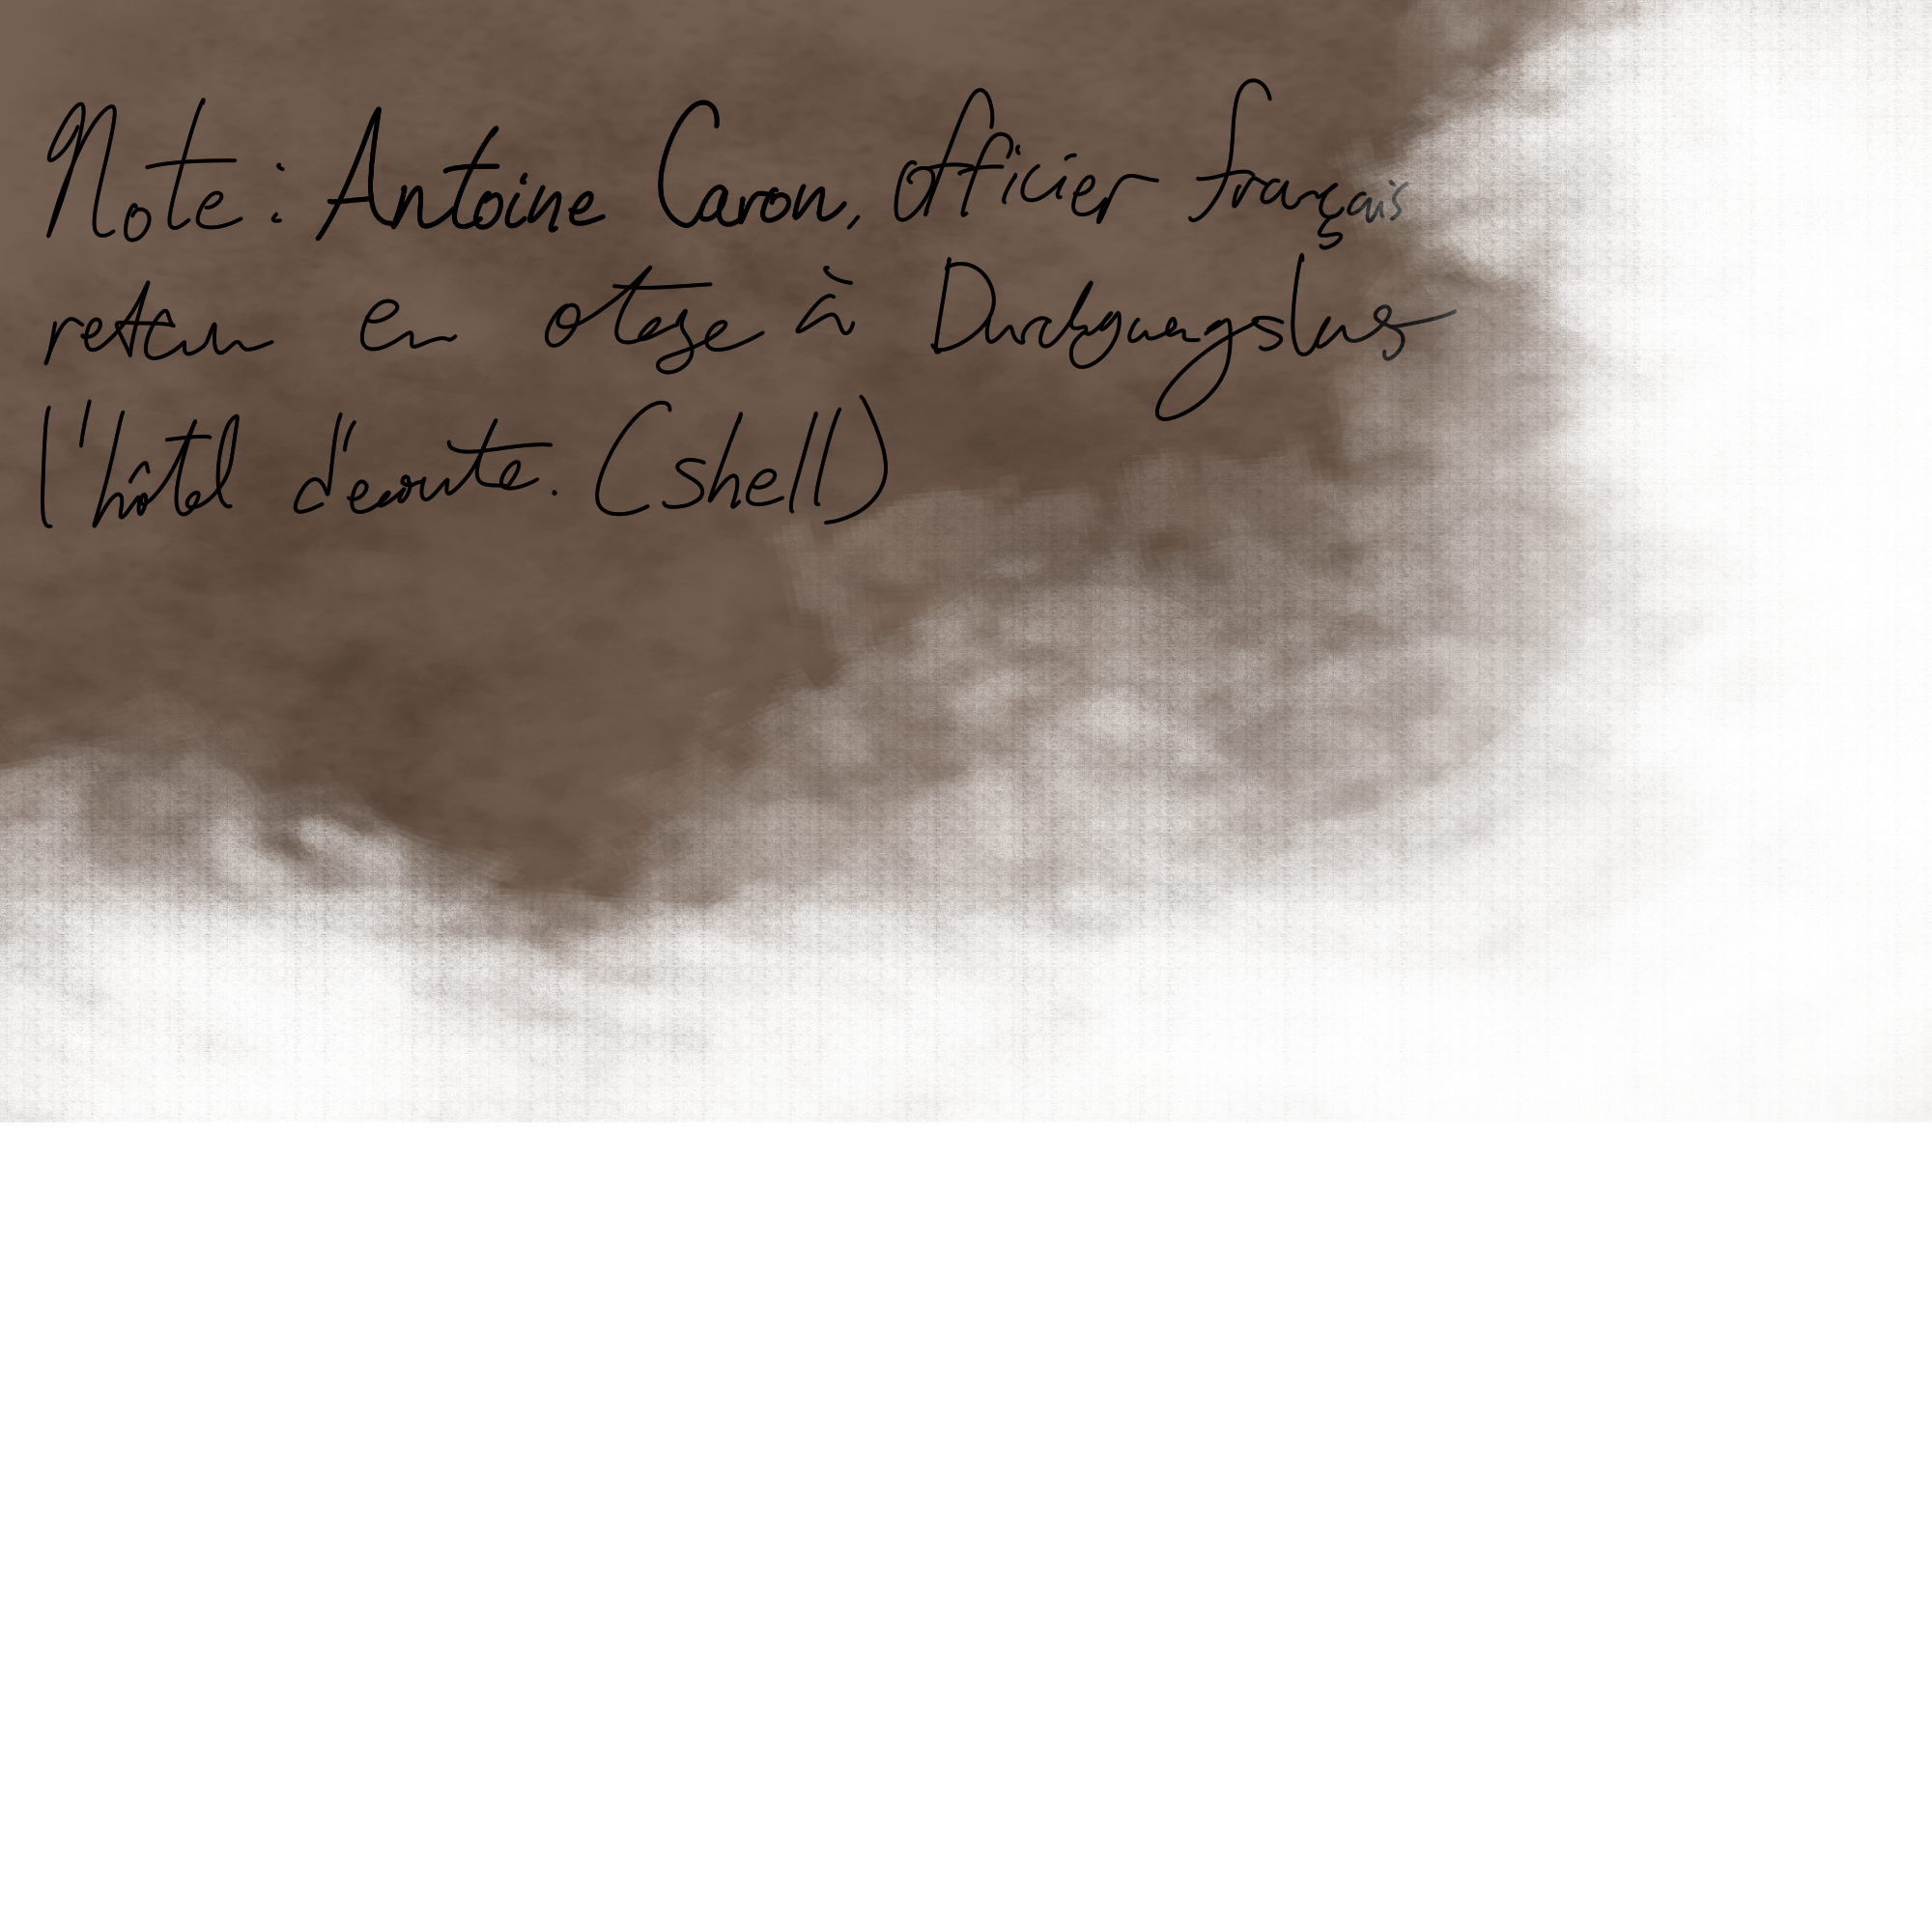 Note: Antoine Caron, officier français
retenu en otage à Durchgangslus
l'hôtel d'écoute. (shell)